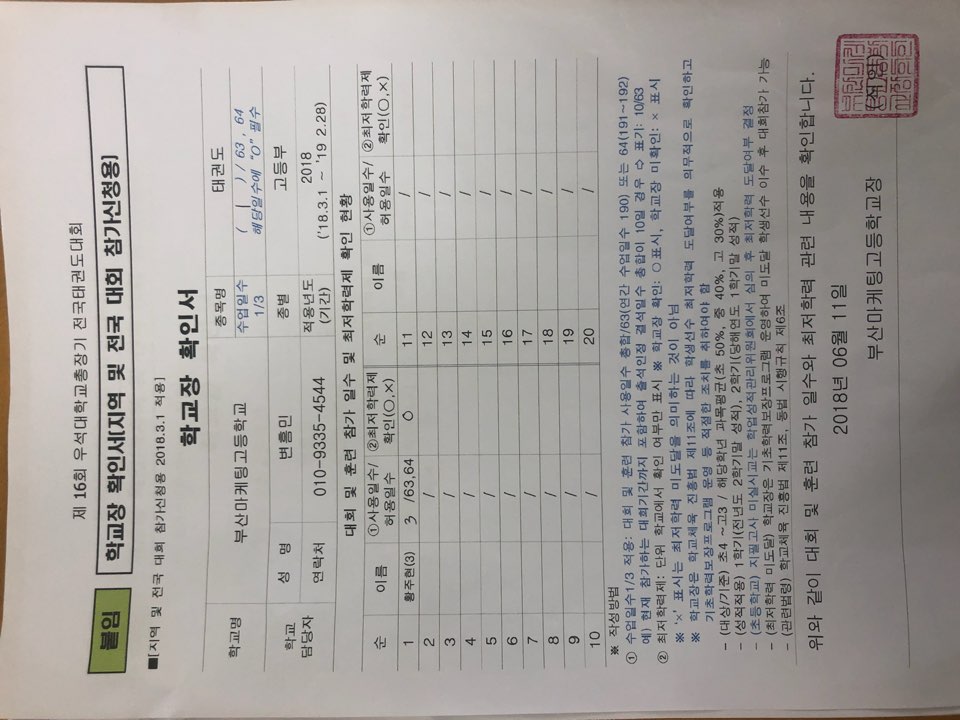 제 16회 우석대학교총장기 전국태권도대회
붙임
학교장 확인서(지역 및 전국 대회 참가신청용)
■[지역 및 전국 대회 참가신청용 2018.3.1 적용]
학교장 확인서
학교명 부산마케팅고등학교 종목명 태권도
수업일수 1/3 ( | ) / 63 , 64
해당일수에 "O" 필수
학교 담당자 성 명 변흥민 종별 고등부
연락처 010-9335-4544 적용년도 (기간) 2018
('18.3.1 ~ '19 2.28)
대회 및 훈련 참가 일수 및 최저학력제 확인 현황
순 이름 ①사용일수/허용일수 ②최저학력제 확인(○,×) 순 이름 ①사용일수/허용일수 ②최저학력제 확인(○,×)
1 황주현(3) 3 /63,64 O 11 /
2 / 12 /
3 / 13 /
4 / 14 /
5 / 15 /
6 / 16 /
7 / 17 /
8 / 18 /
9 / 19 /
10 / 20 /
※ 작성방법
① 수업일수1/3 적용: 대회 및 훈련 참가 사용일수 총합/63(연간 수업일수 190) 또는 64(191~192)
예) 현재 참가하는 대회기간까지 포함하여 출석인정 결석일수 총합이 10일 경우 ⇨ 표기: 10/63
② 최저학력제: 단위 학교에서 확인 여부만 표시 ※ 학교장 확인: ○ 표시, 학교장 미확인: × 표시
※ '×' 표시는 최저학력 미도달을 의미하는 것이 아님
※ 학교장은 학교체육 진흥법 제11조에 따라 학생선수 최저학력 도달여부를 의무적으로 확인하고
기초학력보장프로그램 운영 등 적절한 조치를 취하여야 함
- (대상/기준) 초4 ~고3 / 해당학년 과목평균(초 50%, 중 40%, 고 30%)적용
- (성적적용) 1학기(전년도 2학기말 성적), 2학기(당해연도 1학기말 성적)
- (초등학교) 지필고사 미실시교는 학업성적관리위원회에서 심의 후 최저학력 도달여부 결정
- (최저학력 미도달) 학교장은 기초학력보장프로그램 운영하여 미도달 학생선수 이수 후 대회참가 가능
- (관련법령) 학교체육 진흥법 제11조, 동법 시행규칙 제6조
위와 같이 대회 및 훈련 참가 일수와 최저학력 관련 내용을 확인합니다.
2018년 06월 11일
부산마케팅고등학교장
(직인)